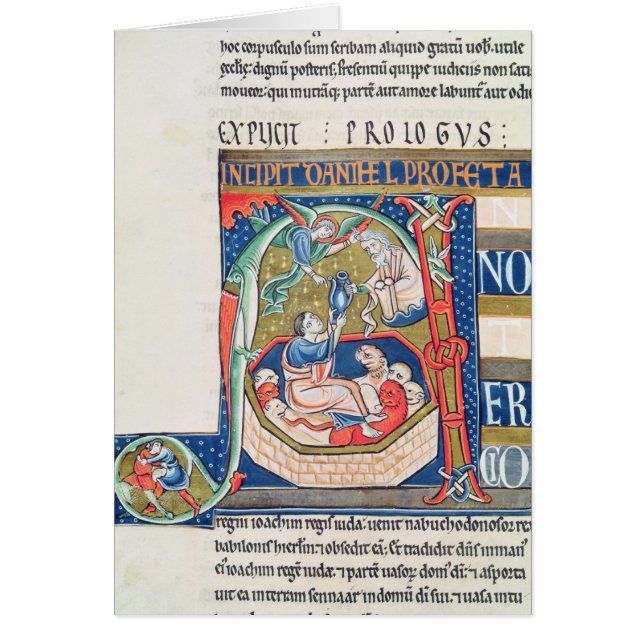 hoc corpusculo sum scribam aliquid gratũ uob. utile
ęcclię: dignũ posteris. Presentiũ quippe iudiciis non sati
moueor: qui in utrãq; partẽ aut amore labunt aut odio
EXPLICIT : PROLOGVS :
INCIPIT DANIHEL PROFETA
A
N
NO
T
ER
CIO
regni ioachim regis iuda: uenit nabuchodonosor rex
babilonis hierlm: ⁊ obsedit eã; Et tradidit dñs in manu
ei ioachim regẽ iudę: ⁊ partẽ uasoꝝ dom di: ⁊ asporta
uit ea in terram sennaar in domũ di sui: ⁊ uasa intu